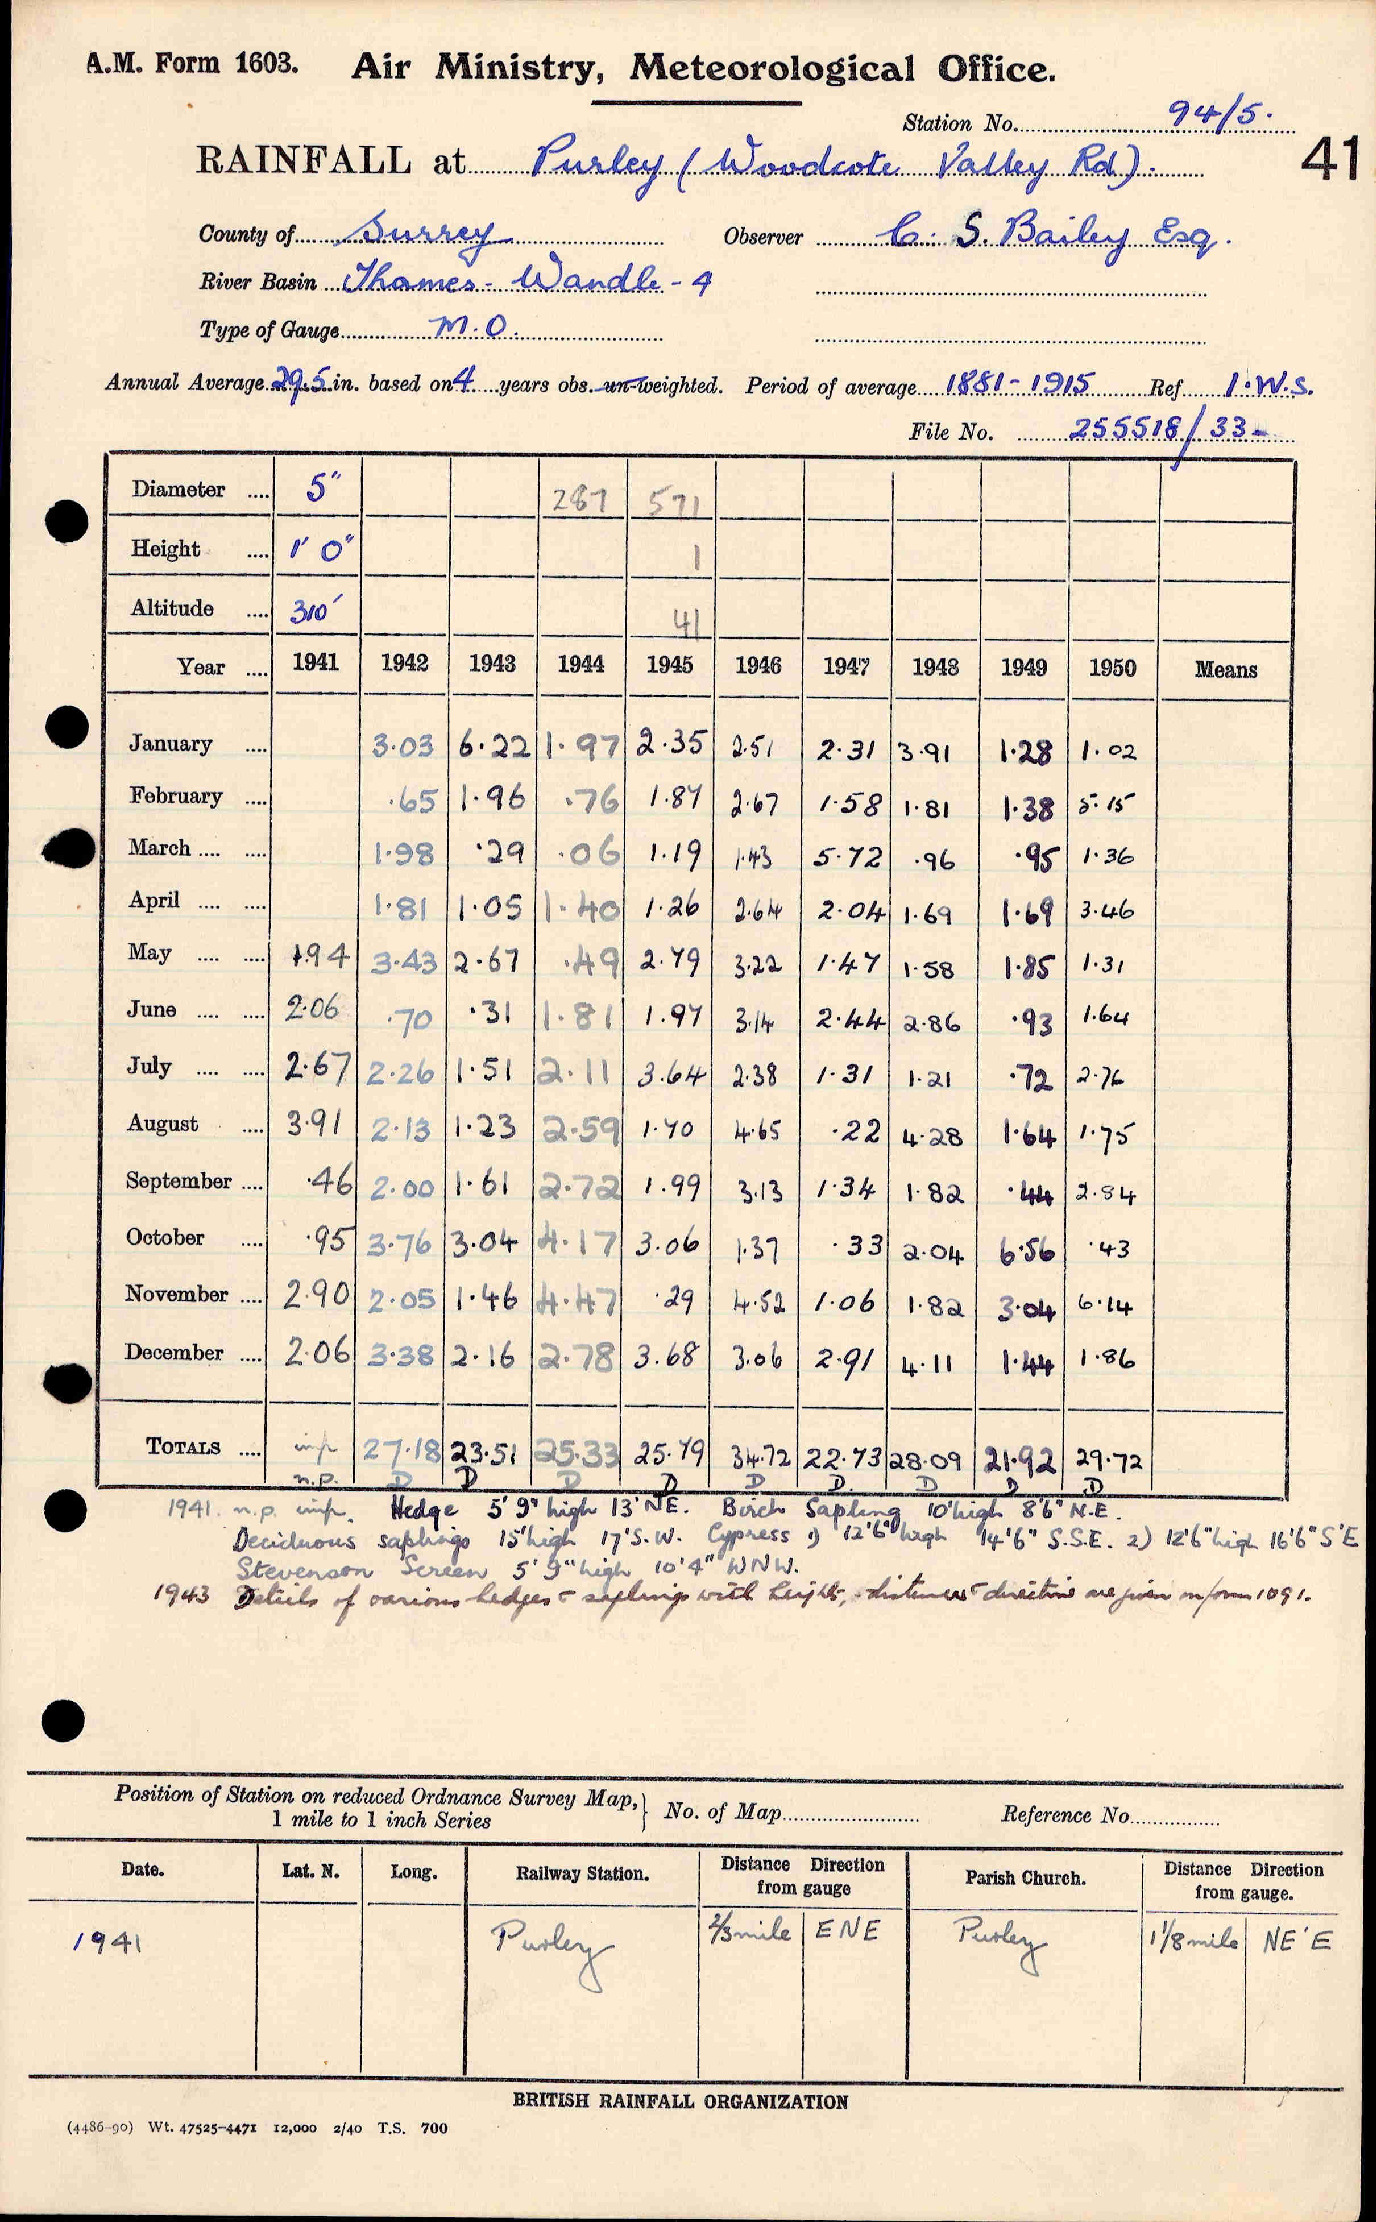 A.M. Form 1603. Air Ministry, Meteorological Office.
Station No. 94/5.
RAINFALL at Purley (Woodcote Valley Rd). 41
County of Surrey Observer C. S. Bailey Esq.
River Basin Thames - Wandle - 4
Type of Gauge M.O.
Annual Average 29.5 in. based on 4 years obs. un-weighted. Period of average 1881-1915 Ref I.W.S.
File No. 255518/33
Diameter .... 5" 287 571
Height .... 1' 0" 1
Altitude .... 310' 41
Year .... 1941 1942 1943 1944 1945 1946 1947 1948 1949 1950 Means
January .... 3.03 6.22 1.97 2.35 2.51 2.31 3.91 1.28 1.02
February .... .65 1.96 .76 1.87 2.67 1.58 1.81 1.38 5.15
March .... .... 1.98 .29 .06 1.19 1.43 5.72 .96 .95 1.36
April .... .... 1.81 1.05 1.40 1.26 2.64 2.04 1.69 1.69 3.46
May .... .... 1.94 3.43 2.67 .49 2.79 3.22 1.47 1.58 1.85 1.31
June .... .... 2.06 .70 .31 1.81 1.97 3.14 2.44 2.86 .93 1.64
July .... .... 2.67 2.26 1.51 2.11 3.64 2.38 1.31 1.21 .72 2.76
August .... 3.91 2.13 1.23 2.59 1.70 4.65 .22 4.28 1.64 1.75
September .... .46 2.00 1.61 2.72 1.99 3.13 1.34 1.82 .44 2.84
October .... .95 3.76 3.04 4.17 3.06 1.37 .33 2.04 6.56 .43
November .... 2.90 2.05 1.46 4.47 .29 4.52 1.06 1.82 3.04 6.14
December .... 2.06 3.38 2.16 2.78 3.68 3.06 2.91 4.11 1.44 1.86
TOTALS .... inf 27.18 23.51 25.33 25.79 34.72 22.73 28.09 21.92 29.72
n.p. D D D D D D. D D D
1941. n.p. inf. Hedge 5' 9" high 13' NE. Birch Sapling 10' high 8'6" N.E.
Deciduous saplings 15' high 17' S.W. Cypress 1) 12'6" high 14'6" S.S.E. 2) 12'6" high 16'6" S'E
Stevenson Screen 5' 9" high 10' 4" WNW.
1943 Details of various hedges & saplings with heights, distances & direction are given on form 1091.
Position of Station on reduced Ordnance Survey Map, } No. of Map Reference No.
1 mile to 1 inch Series
Date. Lat. N. Long. Railway Station. Distance Direction from gauge Parish Church. Distance Direction from gauge.
1941 Purley 2/3 mile ENE Purley 1 1/8 mile NE'E
BRITISH RAINFALL ORGANIZATION
(4486-90) Wt. 47525-4471 12,000 2/40 T.S. 700